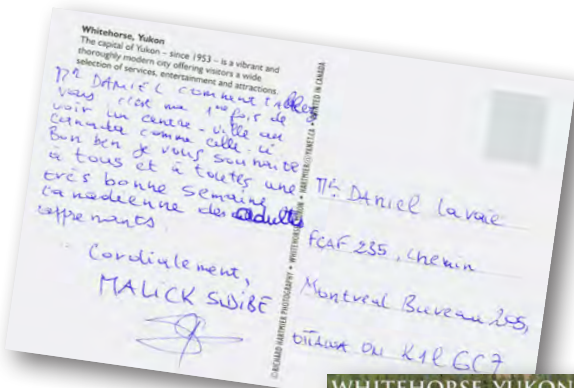 Whitehorse, Yukon
The capital of Yukon – since 1953 – is a vibrant and
thoroughly modern city offering visitors a wide
selection of services, entertainment and attractions.
Mr DANIEL comment allez
vous c'est ma 1ère fois de
voir un centre-ville au
Canada comme celle-ci
Bon ben je vous souhaite
à tous et à toutes une
très bonne semaine
canadienne des adultes
apprenants.
Cordialement,
MALICK SIDIBE
©RICHARD HARTMIER PHOTOGRAPHY • WHITEHORSE, YUKON • HARTMIER@YKNET.CA • PRINTED IN CANADA
Mr DANIEL Lavoie
FCAF 235, Chemin
Montreal Bureau 205,
OTTAWA ON K1L 6C7
WHITEHORSE YUKON